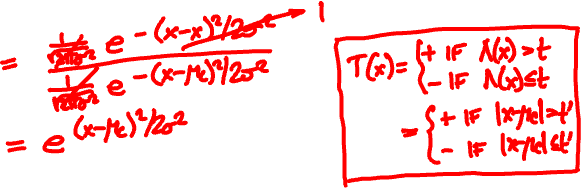 = 1/√2πσ² e^-(x-x)²/2σ² → 1
1/√2πσ² e^-(x-μc)²/2σ²
= e^(x-μc)²/2σ²
T(x) = { + IF Λ(x) > t
- IF Λ(x) ≤ t
= { + IF |x-μc| > t'
- IF |x-μc| ≤ t'